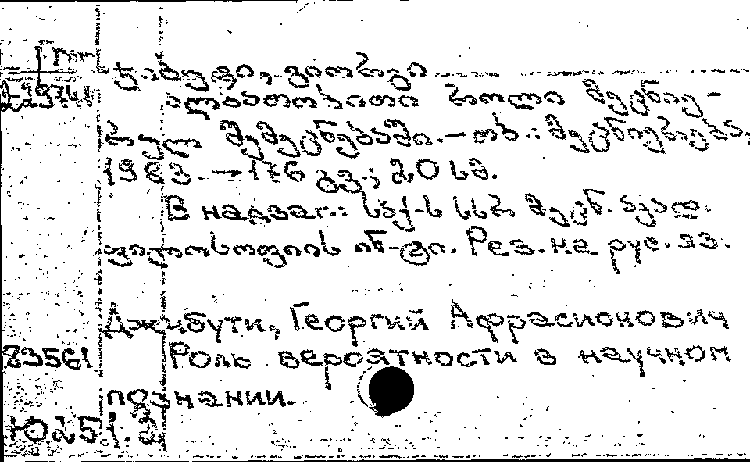 Груз
ჯიბუტი, გიორგი
ალბათობითი როლი მეცნიე-
რულ შემეცნებაში. – თბ.: მეცნიერება,
1983. – 176 გვ.; 20 სმ.
В надзаг.: საქ-ს სსრ მეცნ. აკად.
ფილოსოფიის ინ-ტი. Рез. на рус. яз.
Джибути, Георгий Афрасионович
23561 Роль вероятности в научном
познании.
Ю251.2